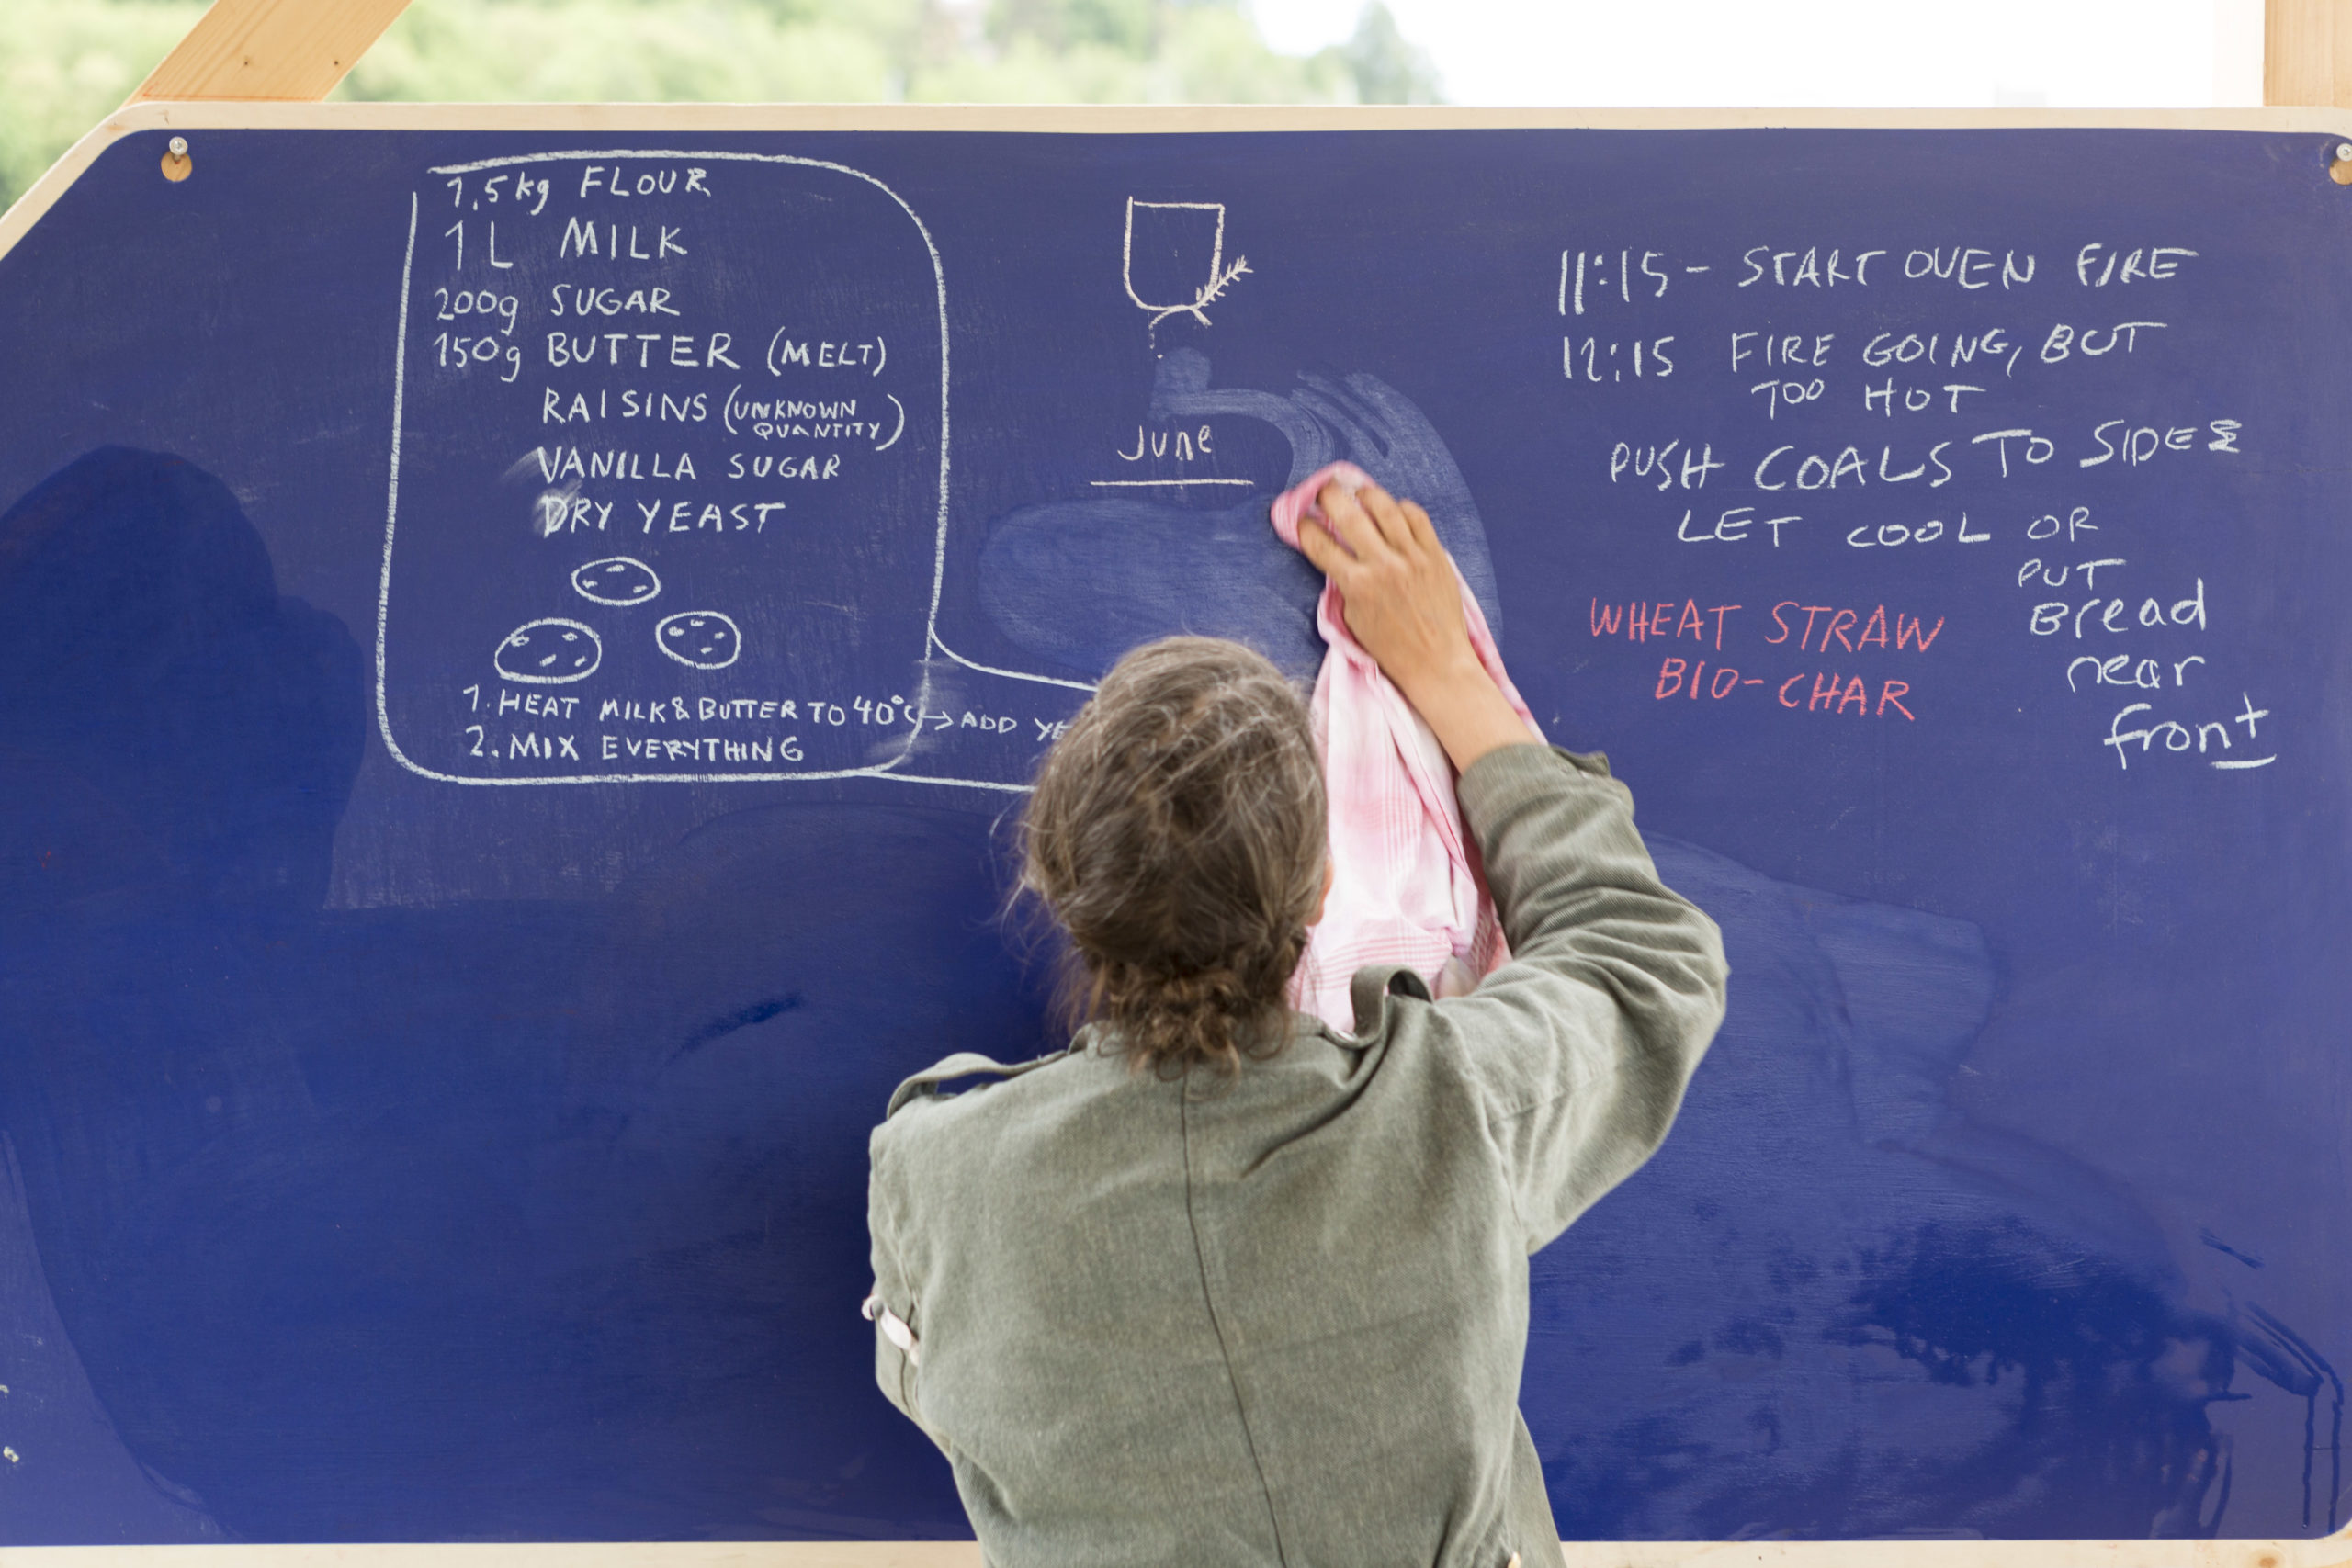 1,5kg FLOUR
1L MILK
200g SUGAR
150g BUTTER (MELT)
RAISINS (UNKNOWN
QUANTITY)
VANILLA SUGAR
DRY YEAST
1. HEAT MILK & BUTTER TO 40°C → ADD
2. MIX EVERYTHING
June
11:15 - START OVEN FIRE
12:15 FIRE GOING, BUT
TOO HOT
PUSH COALS TO SIDE &
LET COOL OR
PUT
Bread
near
front
WHEAT STRAW
BIO-CHAR